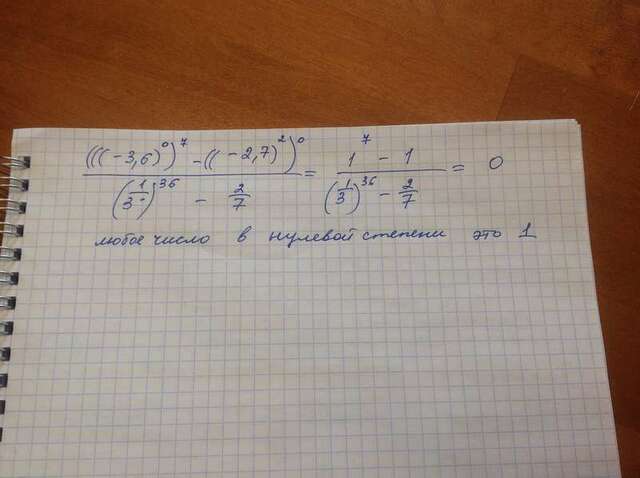 (((-3,6)⁰)⁷ - ((-2,7)²)⁰ / (1/3)³⁶ - 2/7 = 1⁷ - 1 / (1/3)³⁶ - 2/7 = 0
любое число в нулевой степени это 1